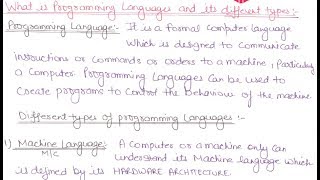 What is Programming Languages and its different types:-
Programming Language:- It is a formal computer language
which is designed to communicate
instructions or commands or orders to a machine; Particularly
a Computer. Programming Languages can be used to
Create programs to control the Behaviour of the machine
Different types of programming Languages :-
1) Machine Language:- A Computer or a machine only can
M/C understand its Machine language which
is defined by its HARDWARE ARCHITECTURE.